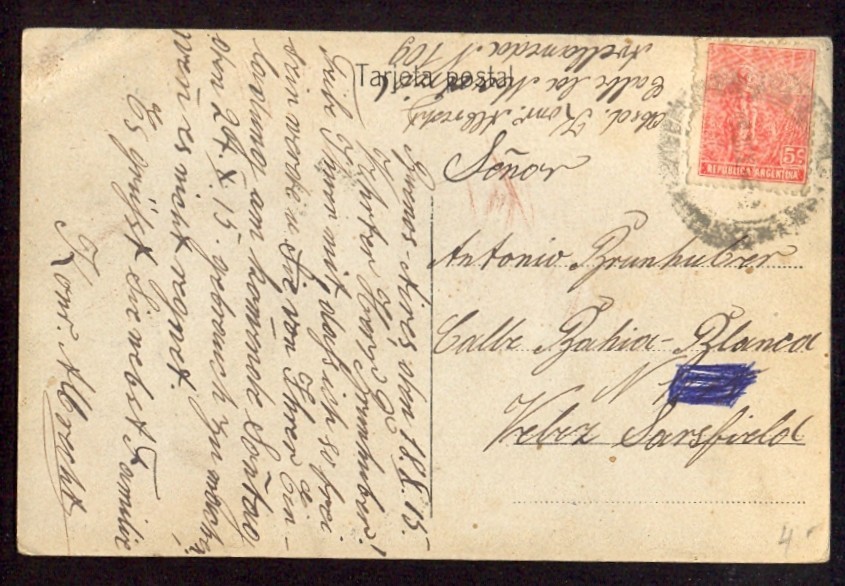 Tarjeta postal
Absd. Konr. Albrecht
Calle La
Avellaneda N 709
5c
REPUBLICA ARGENTINA
Señor
Antonio Brunhuber
Calle Bahia-Blanca
N
Velez Sarsfield
Buenos-Aires den 18.X.15.
Geehrter Herr Brunhuber!
Teile Ihnen mit, daß ich so frei
sein werde u. die von Ihrer Ein-
ladung am komende Sontag
den 24.X.15. gebrauch zu machen,
wen es nicht regnet.
Es grüßt Sie nebst Familie
Konr. Albrecht
4